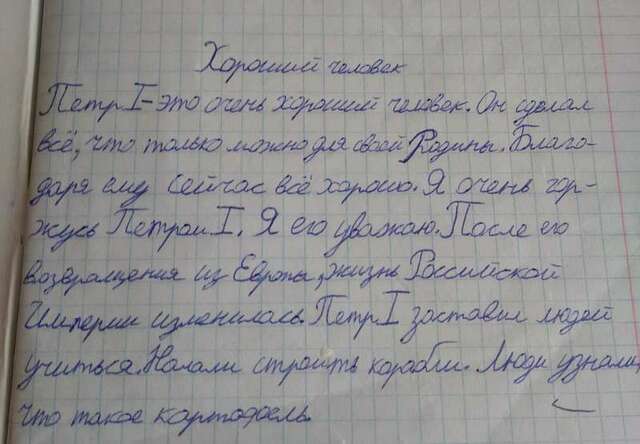 Хороший человек
Петр I - это очень хороший человек. Он сделал
всё, что только можно для своей Родины. Благо-
даря ему сейчас всё хорошо. Я очень гор-
жусь Петром I. Я его уважаю. После его
возвращения из Европы, жизнь Российской
Империи изменилась. Петр I заставил людей
учиться. Начали строить корабли. Люди узнали,
что такое картофель.